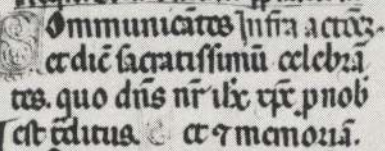 Communicātes Infra actōz.
et diē sacratissimū celebrā
tes. quo dn̄s nr̄ ihc̄ xp̄c ꝓ nob̄
est t̄ditus. et ⁊ memoriā.